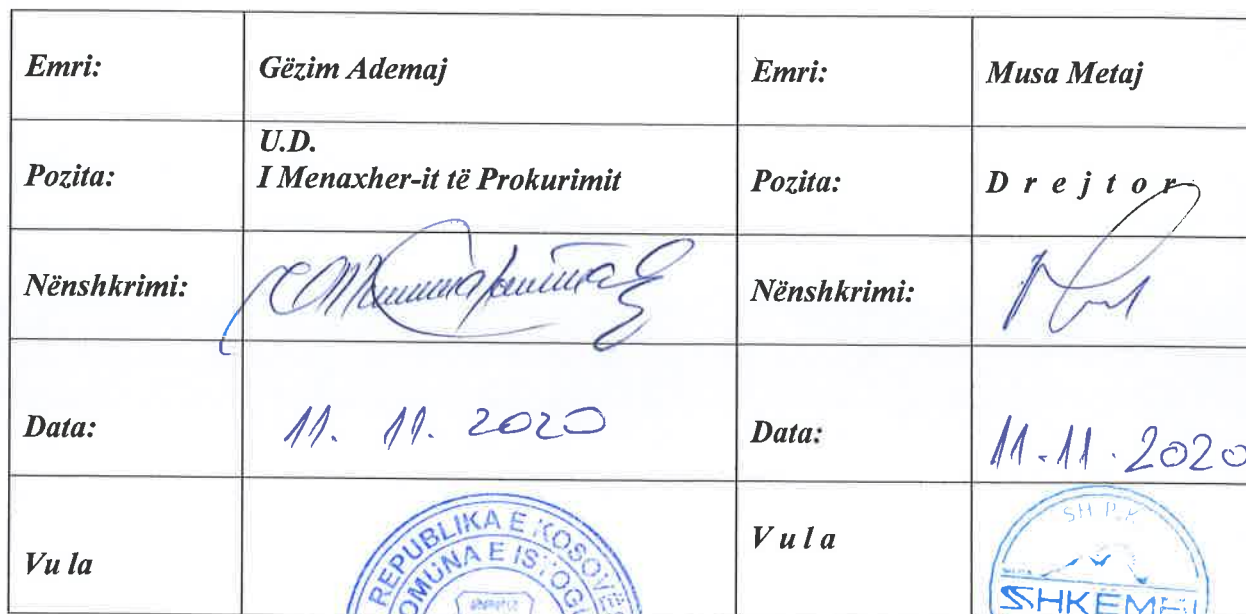 Emri: Gëzim Ademaj Emri: Musa Metaj
U.D.
Pozita: I Menaxher-it të Prokurimit Pozita: D r e j t o r
Nënshkrimi: Nënshkrimi:
Data: 11. 11. 2020 Data: 11.11.2020
Vu la V u l a
REPUBLIKA E KOSOVËS
KOMUNA E ISTOGUT
SH.P.K